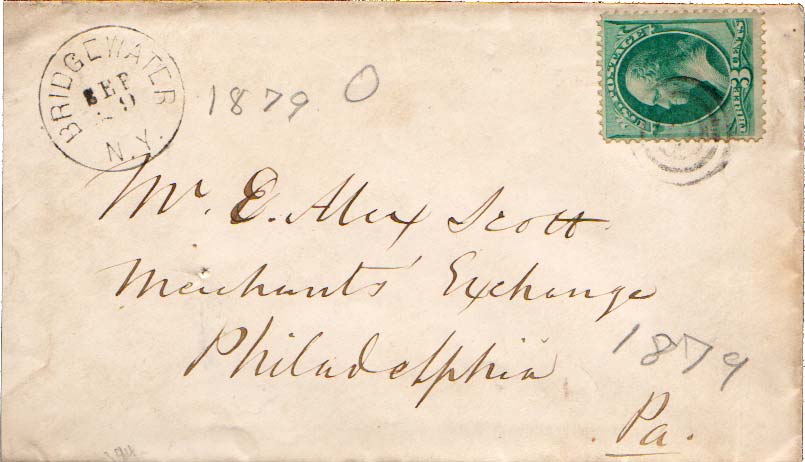 BRIDGEWATER
SEP
9
N.Y.
1879 O
U.S. POSTAGE
THREE 3 CENTS
Mr. E. Alex Scott
Merchants' Exchange
Philadelphia
Pa.
1879